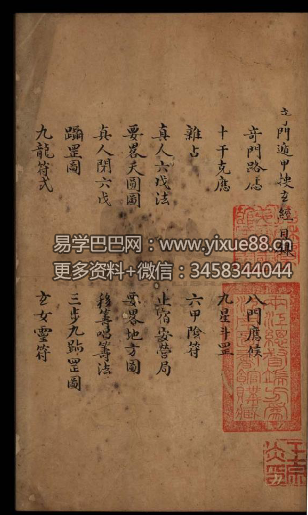 奇門遁甲捷玄經目錄
奇門路為
八門應候
十干克應
九星斗罡
雜占
六甲陰符
真人六戊法
止宿安營局
要畧天圖圖
要畧地方圖
真人閉六戊
移筭唱籌法
躡罡圖
三步九跡罡圖
九龍符式
玄女靈符
易学巴巴网：www.yixue88.cn
更多资料+微信：3458344044